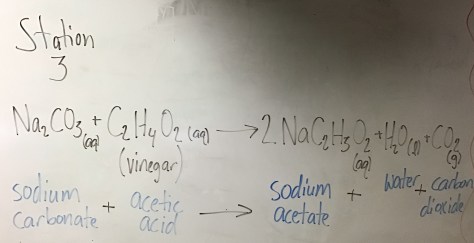 Station
3
Na₂CO₃(aq) + C₂H₄O₂(aq) → 2 NaC₂H₃O₂(aq) + H₂O(l) + CO₂(g)
(vinegar)
sodium carbonate + acetic acid → sodium acetate + water + carbon dioxide